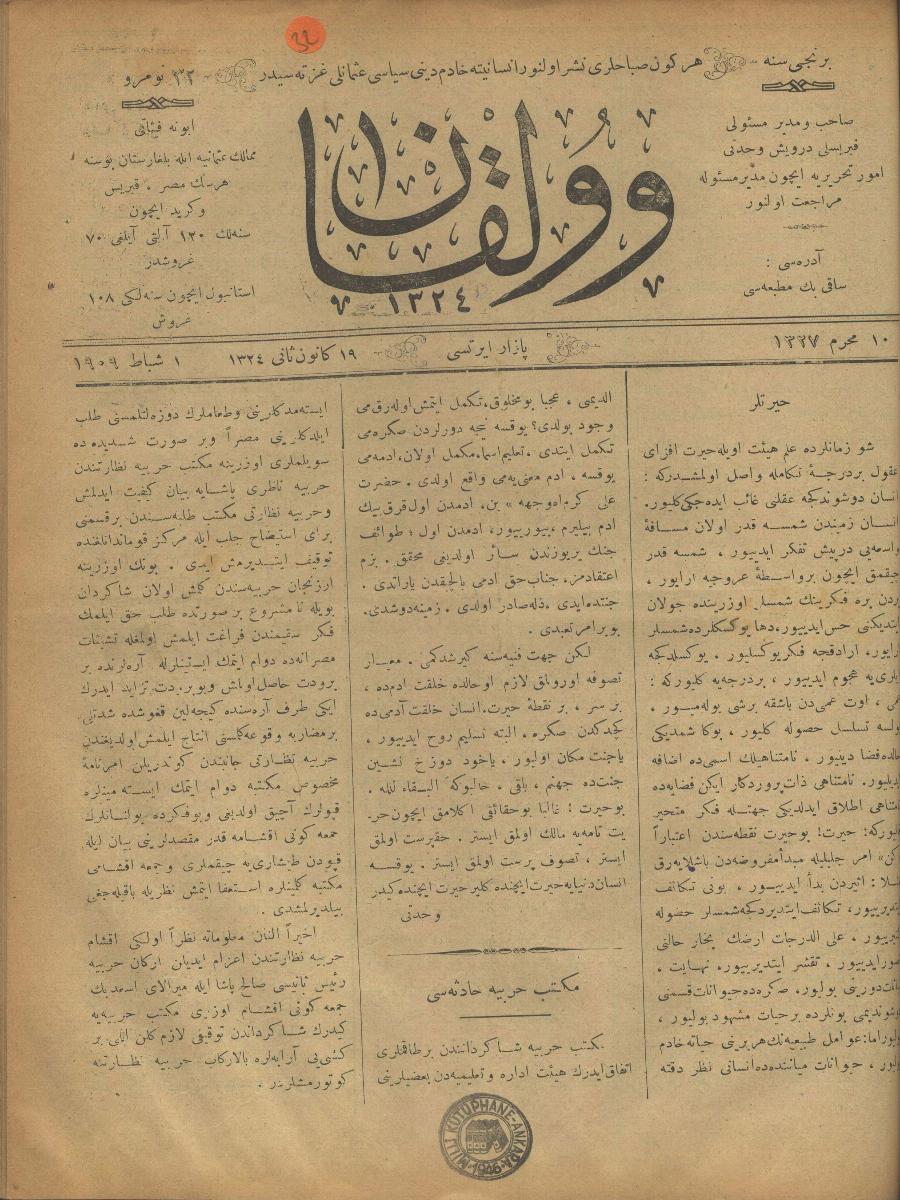 32
برنجی سنه
هر كون صباحلری نشر اولنور انسانیته خادم دینی سیاسی عثمانلی غزته سیدر
٣٢ نومرو
صاحب و مدیر مسئولی
قبریسلی درویش وحدتی
امور تحریریه ایچون مدیر مسئوله
مراجعت اولنور
آدره‌سی :
ساقی بك مطبعه‌سی
وولقان
١٣٢٤
ابونه فیئاتی
ممالك عثمانیه ایله بلغارستان بوسنه
هرسك مصر ، قبریس
وكرید ایچون
سنه‌لك ١٢٠ آلتی آیلغی ٧٠
غروشدر
استانبول ایچون سنه‌لكی ١٠٨
غروش
١٠ محرم ١٣٢٧
پازار ایرتسی
١٩ كانون ثانی ١٣٢٤
١ شباط ١٩٠٩
حیرتلر
شو زمانلرده علم هیئت اویله حیرت افزای
عقول بر درجهٔ تكامله واصل اولمشدركه :
انسان دوشوندكجه عقلنی غائب ایده‌جكی كلیور.
انسان زمیندن شمسه قدر اولان مسافهٔ
واسعه‌یی درپیش تفكر ایدییور ، شمسه قدر
چیقمق ایچون بر واسطهٔ عروجیه آرایور ،
بردن بره فكرینك شمسلر اوزرینده جولان
ایتدیكنی حس ایدییور، دها یوكسكلرده شمسلر
آرایور، آرادقجه فكر یوكسلیور ، یوكسلدكجه
ایلری‌یه هجوم ایدییور ، بر درجه‌یه كلیوركه :
عمی ، اوت عمی‌دن باشقه برشی بوله‌میور ،
تسلسل حصوله كلیور ، بوكا شمدیكی
حالده فضا دینیور ، نامتناهیلك اسمی ده اضافه
ایدیلیور. نامتناهی ذات پروردكار ایكن فضایه‌ده
نامتناهی اطلاق ایدلدیكی جهتله فكر متحیر
قلیوركه: حیرت! بو حیرت نقطه‌سندن اعتباراً
«كن» امر جلیلیله مبدأ مفروضه‌دن باشلایه‌رق
مثلا : اثیردن بدأ ایدییور ، بونی تكاثف
ایتدیرییور، تكاثف ایتدیردكجه شمسلر حصوله
كتیرییور ، علی الدرجات ارضك بخار حالنی
تصور ایدییور ، تقشر ایتدیرییور، نهایت ،
نباتات دورینی بولیور، صكره‌ده حیوانات قسمنی
دوشوندیمی بونلرده بر حیات مشهود بولیور ،
عوامل طبیعیه‌نك هربرینی حیاته خادم
بولیور ، حیوانات میاننده‌ده انسانی نظر دقته
الدیمی ، عجبا بو مخلوق، تكمل ایتمش اوله‌رق‌می
وجود بولدی؟ یوقسه نیجه دورلردن صكره‌می
تكمل ایتدی . تعلیم اسما، مكمل اولان، ادمه‌می
یوقسه ، ادم معنی‌یه‌می واقع اولدی . حضرت
علی كرم‌الله وجهه « بن، ادمدن اول قرق بیك
ادم بیلیرم ، بیورییور، ادمدن اول ؛ طوائف
جنك یریوزندن سائر اولدیغی محقق . بزم
اعتقادمز، جناب حق ادمی بالچقدن یاراتدی .
جنتده‌ایدی ، ذله صادر اولدی ، زمینه دوشدی.
بو بر امر تعبدی .
لكن جهت فنیه‌سنه كیرشدكمی . معیار
تصوفه اورولمق لازم اوحالده خلقت ادم‌ده ،
بر سر ، بر نقطهٔ حیرت. انسان خلقت آدمی‌ده
كچدكدن صكره . البته تسلیم روح ایدییور ،
یا جنت مكان اولیور. یاخود دوزخ نشین
جنت‌ده جهنم ، باقی . حالبوكه البقاء لله .
بو حیرت ! غالبا بو حقائقی اكلامق ایچون حر-
یت تامه‌یه مالك اولمق ایستر . حقپرست اولمق
ایستر ، تصوف پرست اولمق ایستر . یوقسه
انسان دنیایه حیرت ایچنده كلیر حیرت ایچنده كیدر
وحدتی
مكتب حربیه حادثه‌سی
مكتب حربیه شاكرداننندن بر طاقملری
اتفاق ایدرك هیئت اداره و تعلیمیه‌دن بعضیلرینی
ایسته‌مدكلرینی و طعاملرك دوزه‌لتلمسنی طلب
ایلدكلرینی مصراً و بر صورت شدیده‌ده
سویلملری اوزرینه مكتب حربیه نظارتندن
حربیه ناظری پاشایه بیان كیفیت ایدلمش
وحربیه نظارتی مكتب طلبه‌سندن برقسمنی
برای استیضاح جلب ایله مركز قوماندانلغنده
توقیف ایتدیرمش ایدی . بونك اوزرینه
ارزنجان حربیه‌سندن كلمش اولان شاكردان
بویله نامشروع بر صورتده طلب حق ایلمك
فكر سقیمندن فراغت ایلمش اولمغله تشبثات
مصرانه‌ده دوام ایتمك ایستینلرله آره‌لرنده بر
برودت حاصل اولمش و بو برودت تزاید ایدرك
ایكی طرف آره‌سنده كیجه‌لین قغوشده شدتلی
بر مضاربه وقوعه كلمسنی انتاج ایلمش اولدیغندن
حربیه نظارتی جانبندن كوندریلن امرنامهٔ
مخصوص مكتبه دوام ایتمك ایسته‌مینلره
قپولرك آچیق اولدیغی و بو فكرده بولنانلرك
جمعه كونی اقشامه قدر مقصدلرینی بیان ایله
قپودن طیشاری‌یه چیقملری و جمعه اقشامی
مكتبه كلمینلره استعفا ایتمش نظریله باقیله‌جغی
بیلدیرلمشدی .
اخیراً النان معلوماته نظراً اولكی اقشام
حربیه نظارتندن اعزام ایدیلن اركان حربیه
رئیس ثانیسی صالح پاشا ایله میرالای اسعد بك
جمعه كونی اقشام اوزری مكتب حربیه‌یه
كیدرك شاكرداندن توقیفی لازم كلن اللی بر
كشی‌یی آرابه‌لره بالاركاب حربیه نظارتنه
كوتورمشلردر .
MİLLİ KÜTÜPHANE-ANKARA
1946